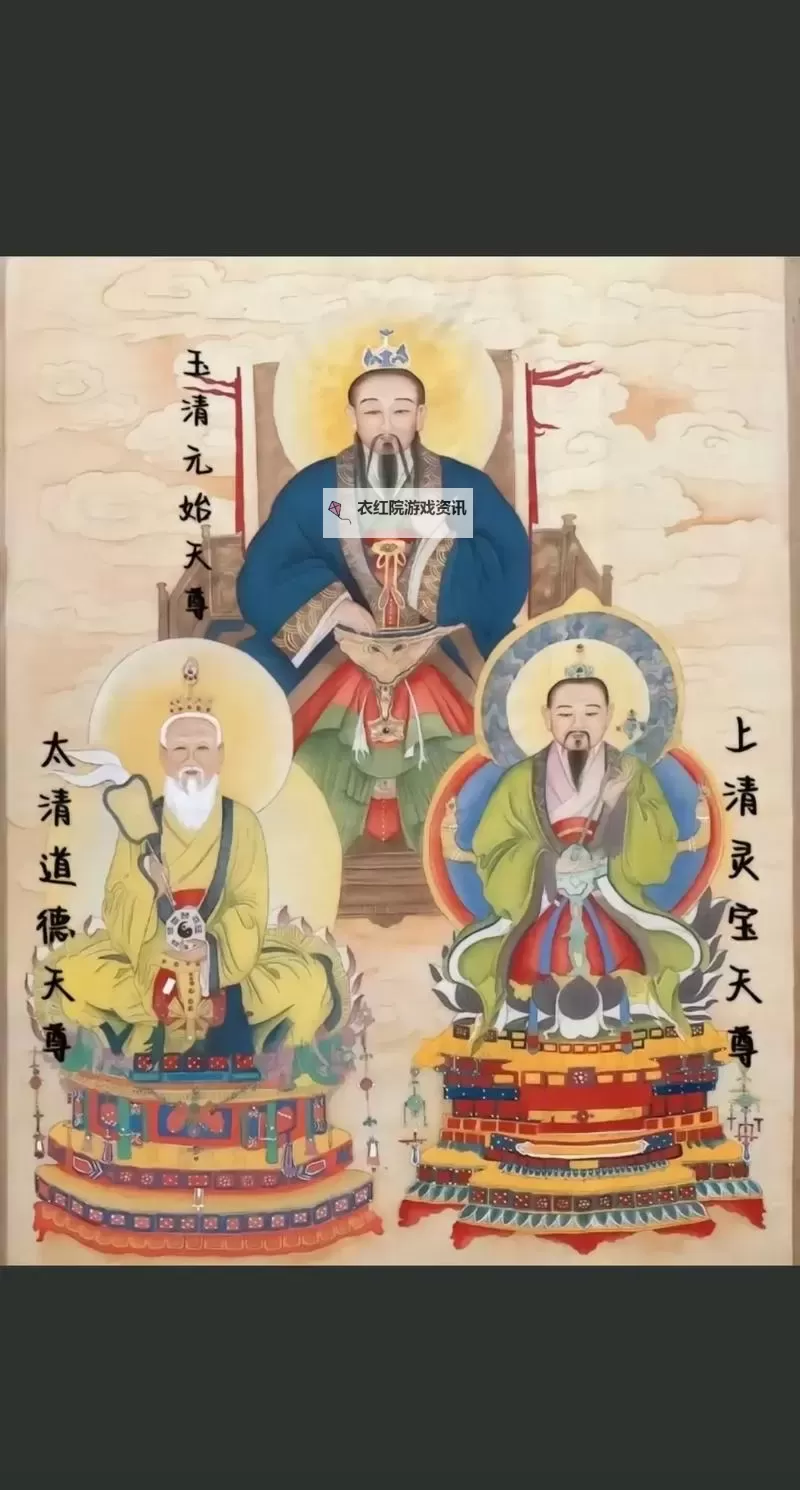 玉清元始天尊
衣红院游戏资讯
太清道德天尊
上清灵宝天尊